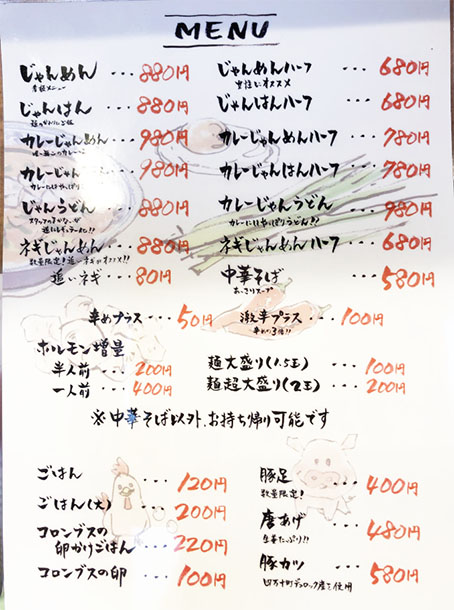 MENU
じゃんめん ・・・ 880円
看板メニュー
じゃんはん ・・・ 880円
カレーじゃんめん ・・・ 980円
カレーじゃん ・・・ 980円
カレーにはやっぱり
じゃんうどん ・・・ 880円
ネギじゃんめん ・・・ 880円
数量限定!追いネギがオススメ!!
追いネギ ・・・ 80円
じゃんめんハーフ ・・・ 680円
女性にオススメ
じゃんはんハーフ ・・・ 680円
カレーじゃんめんハーフ ・・・ 780円
カレーじゃんはんハーフ ・・・ 780円
カレーじゃんうどん ・・・ 980円
カレーにはやっぱりうどん!!
ネギじゃんめんハーフ ・・・ 680円
中華そば ・・・ 580円
あっさりスープ
辛めプラス ・・・ 50円
激辛プラス ・・・ 100円
辛さ3倍!!
ホルモン増量
半人前 ・・・ 200円
一人前 ・・・ 400円
麺大盛り(1.5玉) ・・・ 100円
麺超大盛り(2玉) ・・・ 200円
※中華そば以外、お持ち帰り可能です
ごはん ・・・ 120円
ごはん(大) ・・・ 200円
コロンブスの
卵かけごはん ・・・ 220円
コロンブスの卵 ・・・ 100円
豚足 ・・・ 400円
数量限定!
唐あげ ・・・ 480円
生姜たっぷり!!
豚カツ ・・・ 580円
四万十町デュロック産を使用